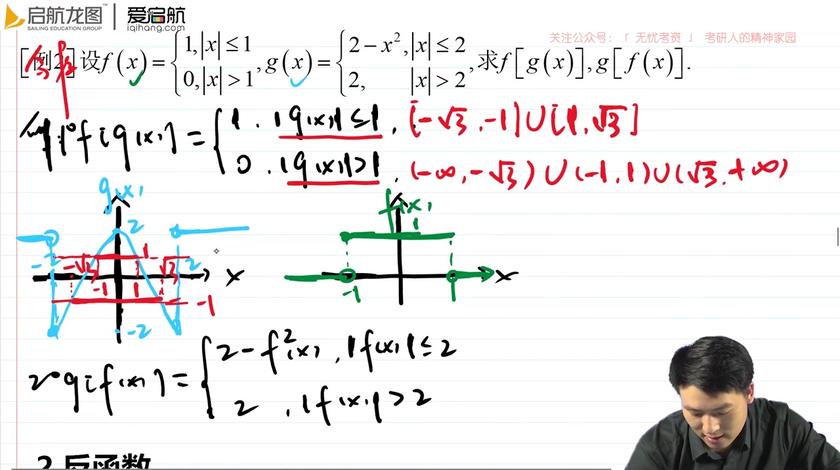 启航龙图 爱启航
SAILING EDUCATION GROUP iqihang.com
关注公众号:「 无忧考资 」 考研人的精神家园
设f(x)={1,|x|≤1 0,|x|>1, g(x)={2-x²,|x|≤2 2, |x|>2, 求f[g(x)],g[f(x)].
1° f[g(x)]={1, |g(x)|≤1, [-√3,-1]∪[1,√3]
0, |g(x)|>1, (-∞,-√3)∪(-1,1)∪(√3,+∞)
g(x) f(x)
2 1 1
-2 -√3 √3 2 x -1 1 x
-1 1 -1
-2
2° g[f(x)]={2-f²(x), |f(x)|≤2
2, |f(x)|>2
2.反函数